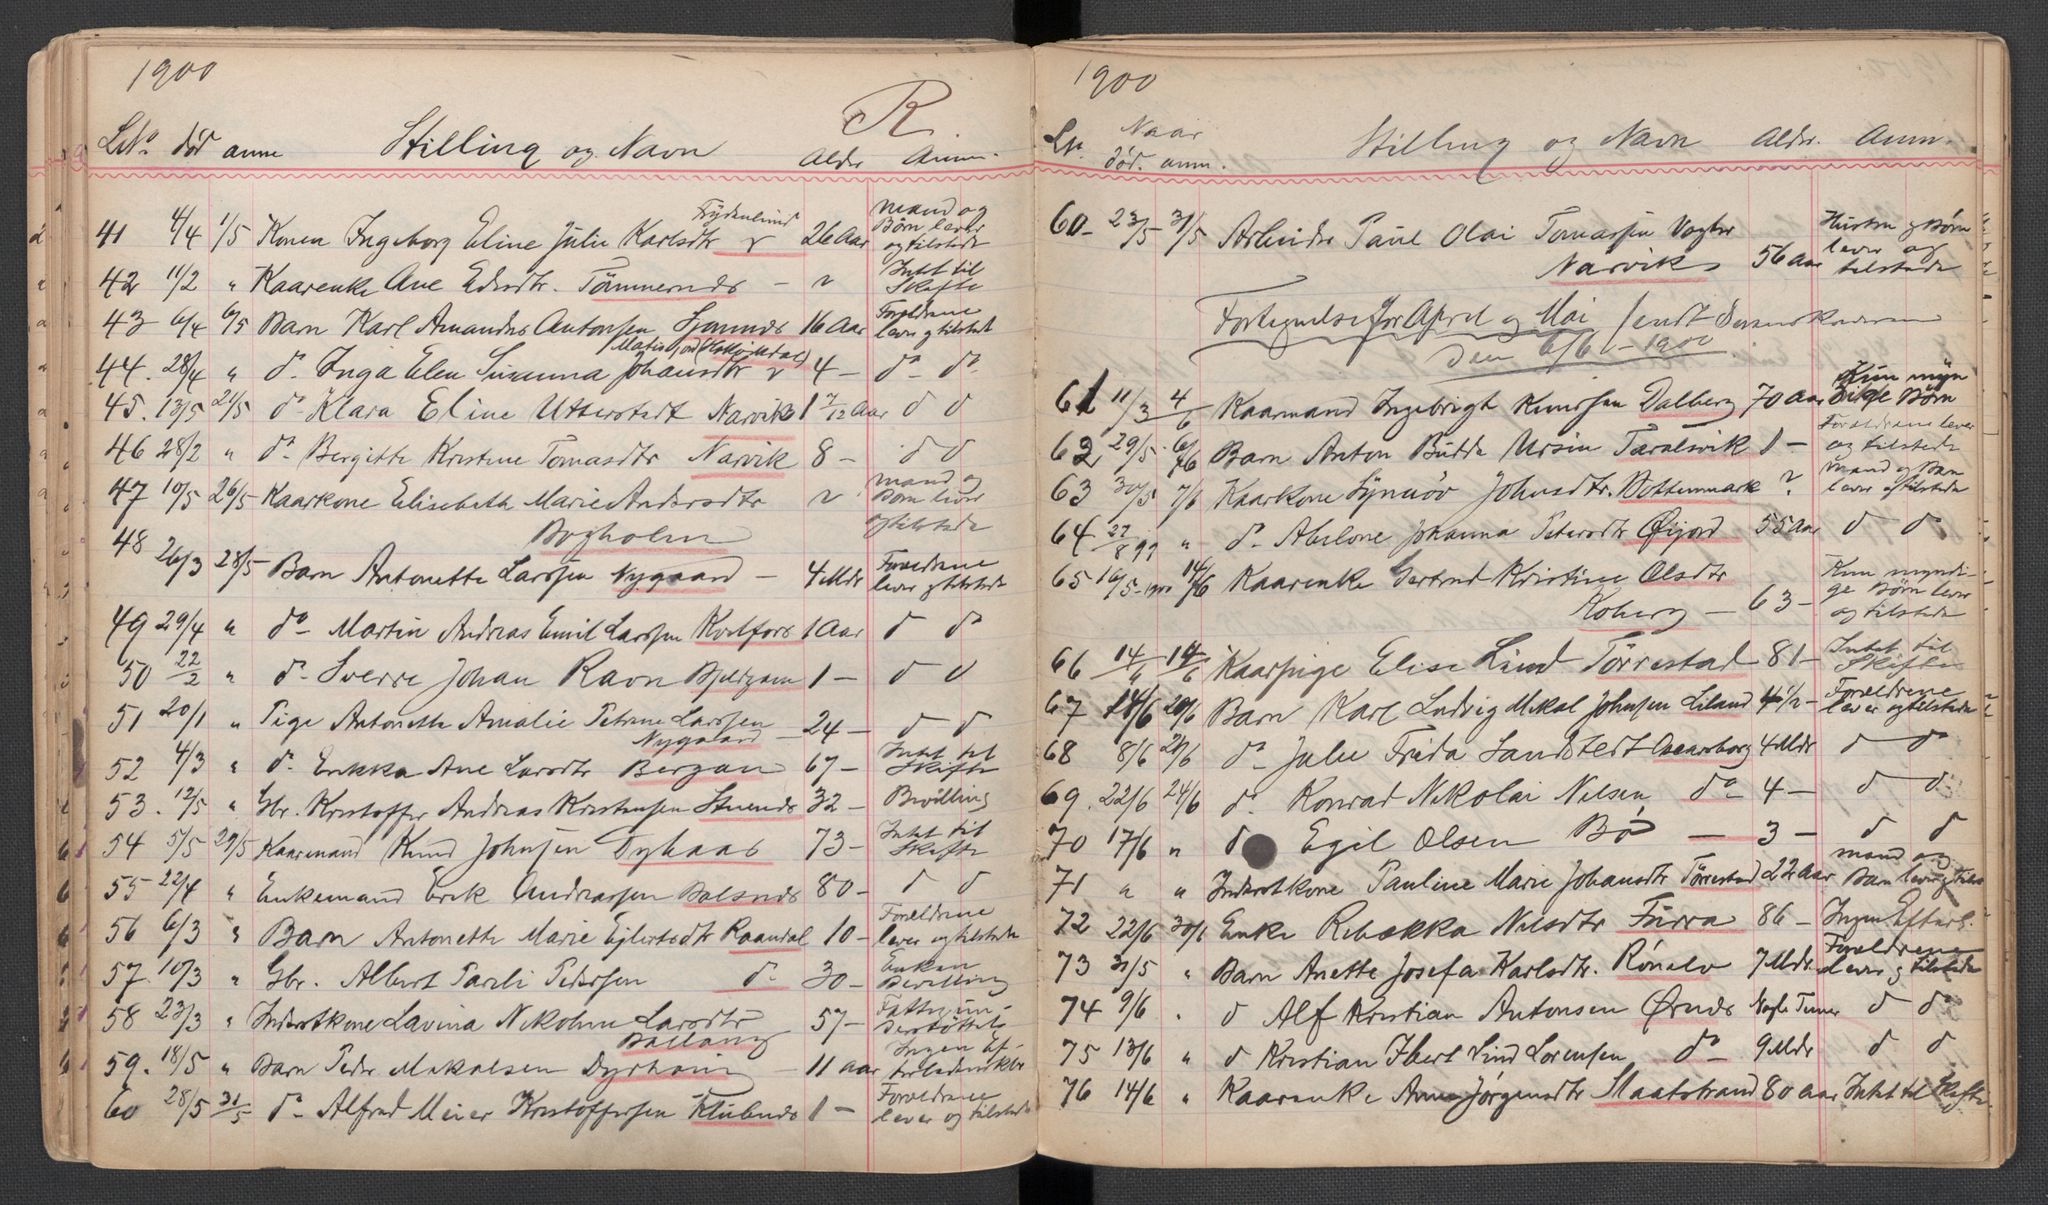 1900
R.
LNo død anm Stilling og Navn Alder Anm.
41 4/4 1/5 Konen Ingeborg Eline Julie Karlsdtr Frydenlund 26 Aar mand og Børn lever og tilstede
42 11/2 " Kaarenke Ane Edisdtr. Tömmernes - Intet til Skifte
43 6/4 6/5 Barn Karl Amandus Antonsen 16 Aar Foreldrene lever og tilstede
44. 28/4 " do Inga Elen Susanna Johansdtr 4 - do do
45. 13/5 21/5 do Klara Eline Utterstedt Narvik 1 7/12 Aar d d
46 28/2 " do Bergitte Kristine Tomasdtr Narvik 8 - d d
47 10/5 26/5 Kaarkone Elisabeth Marie Andersdtr mand og Børn lever og tilstede
Bogholm
48 26/3 28/5 Barn Antonette Larssen Nygaard - 4 Mdr Foreldrene lever og tilstede
49 29/4 " do Martin Andreas Emil Larssen 1 Aar d do
50 22/2 " do Sverre Johan Ravn 1 - d d
51 20/1 " Pige Antonette Amalie Petrine Larssen
Nygaard - 24 - d d
52 4/3 " do Enkka Ane Larsdtr Berjan 67 - Intet til Skifte
53. 12/5 " Gbr. Kristoffer Andreas Kristensen 32 - Bevilling
54 5/5 29/5 Kaarmand Knud Johnsen Dyhaas 73 - Intet til Skifte
55 22/4 " Enkemand Erik Andreassen Balsnes 80 - d d
56 6/3 " Barn Antonette Marie Ejlertsdtr Raandal 10 - Foreldrene lever og tilstede
57 10/3 " Gbr. Albert Parli Pedersen do 30 - Enken Bevilling
58 23/3 " Inderstkone Lavina Nikoline Larsdtr 57 - Fattigunderstöttet
Ballang
59. 18/5 " Barn Peder Mikalsen 11 aar Ingen Efterladenskber
60 28/5 31/5 do Alfred Meier Kristoffersen Klubnes 1 - Foreldrene lever og tilstede
1900
LN. Naar død. anm. Stilling og Navn Alder. Anm.
60 - 23/5 31/5 Arbeider Paul Olai Tomassen Vogter
Narvik 56 aar Hustru og Børn lever og tilstede
Fortegnelse for April og Mai sendt Sorenskriveren
den 6/6 - 1900
61 11/3 4/6 Kaarmand Ingebrigt Knudsen Dalberg 70 aar Kun myndige Børn
62 29/5 6/6 Barn Anton Budda Ursin Taralsvik 1 - Foreldrene lever og tilstede
63 30/5 7/6 Kaarkone Synnöv Johnsdtr. Bottenmark ? mand og Barn lever og tilstede
64 27/8 99 " do Abelone Johanna Petersdtr Øijord 55 Aar d d
65 16/5-1900 14/6 Kaarenke Gertrud Kristine Olsdtr
Koberg - 63 - Kun myndige Børn lever og tilstede
66 14/6 Kaarpige Elise Lind Törrestad 81 - Intet til Skifte
67 14/6 20/6 Barn Karl Ludvig Mikal Johnsen Liland 4 1/2 - Foreldrene lever og tilstede
68 8/6 21/6 do Julie Frida Sandstedt Oscarsborg 4 Mdr d do
69. 22/6 24/6 do Konrad Nikolai Nilsen do 4 - d d
70 17/6 " d Egil Olsen Bö - 3 - d d
71 " " Inderstkone Pauline Marie Johansdtr Törrestad 22 Aar mand og Barn lever og tilst.
72 22/6 30/6 Enke Rebekka Nilsdtr Furra 86 - Ingen Efterl.
73 31/5 " Barn Anette Josefa Karlsdtr. Rönelv 7 Mdr Foreldrene lever og tilstede
74 9/6 . d Alf Kristian Antonsen Ørnes Nogle Timer d do
75 13/6 " d Kristian Ibert Lind Lorensen do 9 Mdr d d
76 14/6 " Kaarenke Anne Jørgensdtr Skaatstrand 80 aar Intet til Skifte